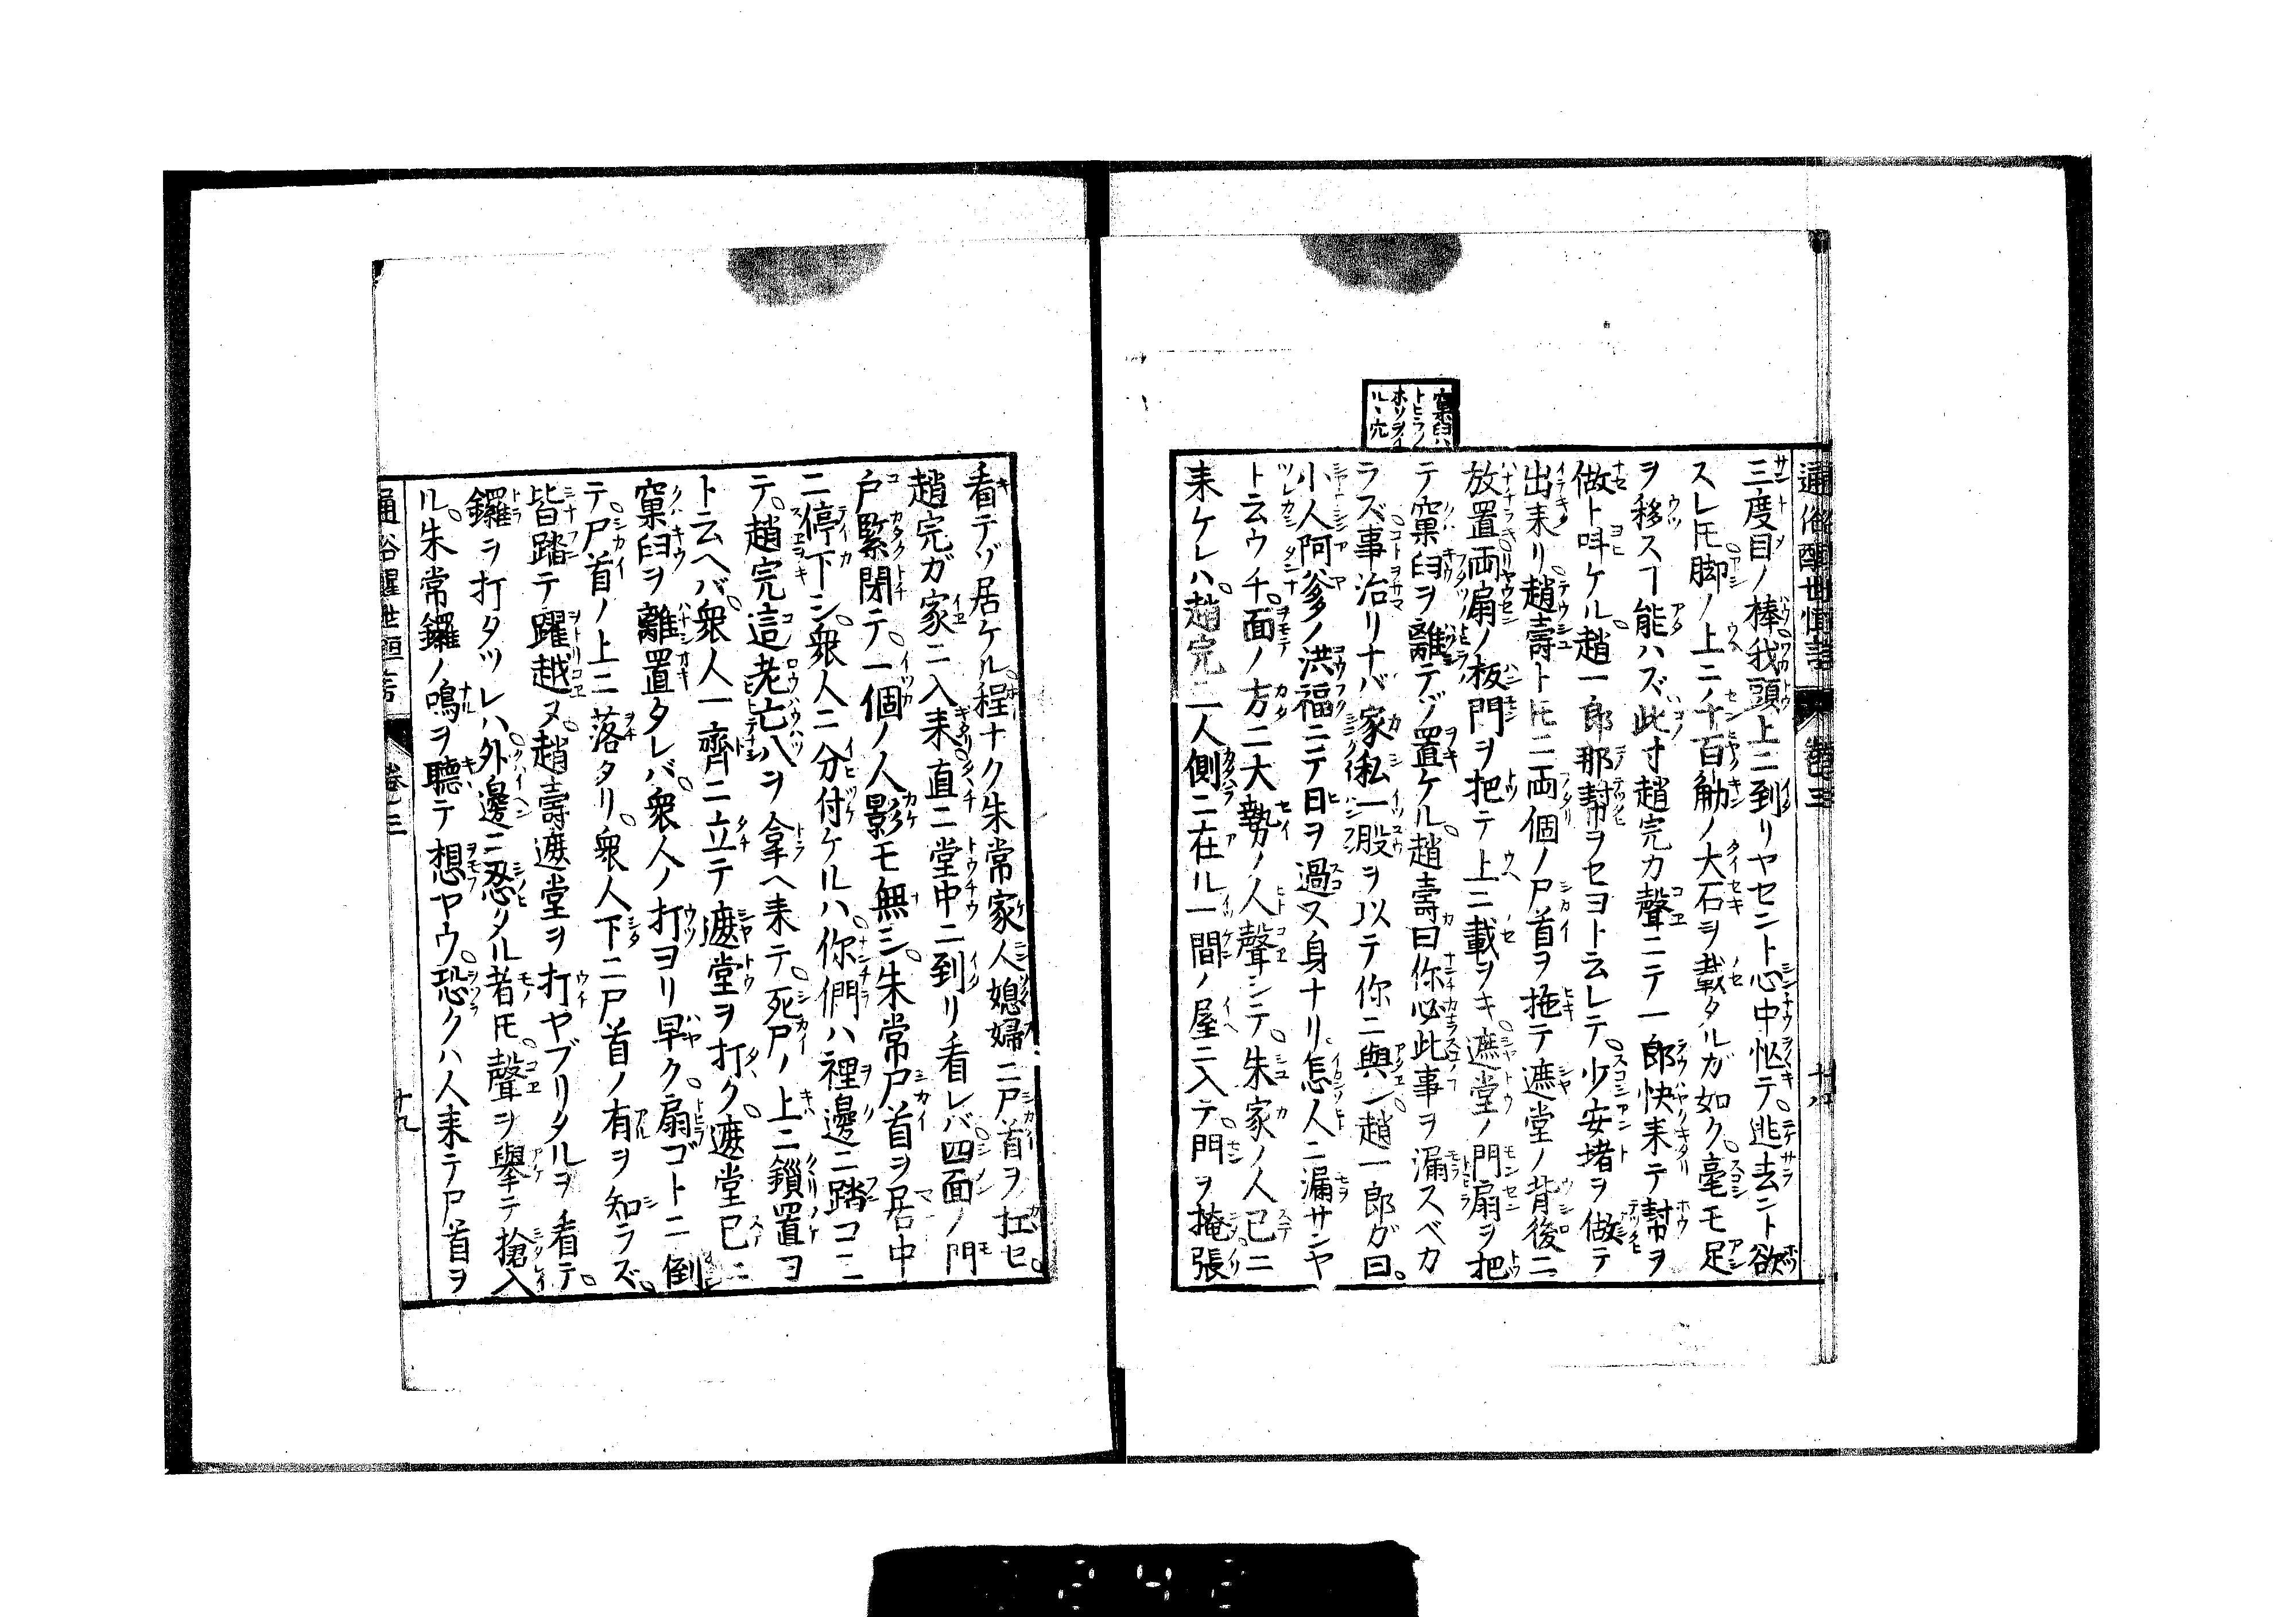 通俗醒世恒言 卷三 十八
窠臼ハ
トヒラノ
ホソヲイ
ルヽ穴
三度目ノ棒我頭上ニ到リヤセント心中怄テ逃去ント欲
スレ𪜈脚ノ上ニ千百觔ノ大石ヲ載タルガ如ク毫モ足
ヲ移スヿ能ハズ此寸趙完カ聲ニテ一郎快来テ幇ヲ
做ト呌ケル趙一郎那幇ヲセヨト云レテ少安堵ヲ做テ
出来リ趙壽ト𪜈ニ両個ノ尸首ヲ拖テ遮堂ノ背後ニ
放置両扇ノ板門ヲ把テ上ニ載ヲキ遮堂ノ門扇ヲ把
テ窠臼ヲ離テゾ置ケル趙壽曰你必此事ヲ漏スベカ
ラズ事治リナバ家私一股ヲ以テ你ニ與ン趙一郎ガ曰
小人阿爹ノ洪福ニテ日ヲ過ス身ナリ怎人ニ漏サンヤ
ト云ウチ面ノ方ニ大勢ノ人聲シテ朱家ノ人已ニ
来ケレハ趙完二人側ニ在ル一間ノ屋ニ入テ門ヲ掩張
看テゾ居ケル程ナク朱常家人媳婦ニ尸首ヲ扛セ
趙完ガ家ニ入来直ニ堂中ニ到リ看レバ四面ノ門
戸緊閉テ一個ノ人影モ無シ朱常尸首ヲ居中
ニ停下シ衆人ニ分付ケルハ你們ハ裡邊ニ踏コニ
テ趙完這老亡八ヲ拿ヘ来テ死尸ノ上ニ鎖置ヨ
ト云ヘバ衆人一齊ニ立テ遮堂ヲ打ク遮堂已ニ
窠臼ヲ離置タレバ衆人ノ打ヨリ早ク扇ゴトニ倒
テ尸首ノ上ニ落タリ衆人下ニ尸首ノ有ヲ知ラズ
皆踏テ躍越ヌ趙壽遮堂ヲ打ヤブリタルヲ看テ
鑼ヲ打タツレハ外邊ニ忍タル者𪜈聲ヲ擧テ搶入
ル朱常鑼ノ鳴ヲ聽テ想ヤウ恐クハ人来テ尸首ヲ
通俗醒世恒言 卷三 十九